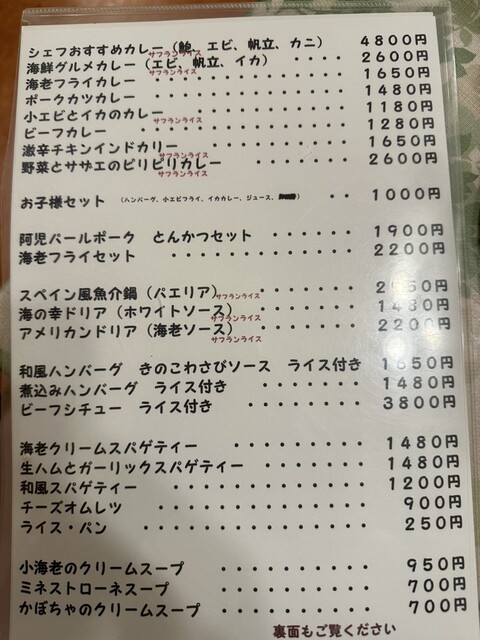 シェフおすすめカレー（鮑、エビ、帆立、カニ） 4800円
サフランライス
海鮮グルメカレー（エビ、帆立、イカ）・・ 2600円
サフランライス
海老フライカレー ・・・・・・・・ 1650円
ポークカツカレー ・・・・・・・・ 1480円
小エビとイカのカレー ・・・・・・・ 1180円
サフランライス
ビーフカレー ・・・・・・・・・ 1280円
激辛チキンインドカリー ・・・・・・ 1650円
サフランライス
野菜とサザエのピリピリカレー ・・・・・ 2600円
サフランライス
お子様セット （ハンバーグ、小エビフライ、イカカレー、ジュース、） ・・ 1000円
阿児パールポーク とんかつセット ・・・・・ 1900円
海老フライセット ・・・・・・・・・ 2200円
スペイン風魚介鍋（パエリア） ・・・・・ 円
サフランライス
海の幸ドリア（ホワイトソース） ・・・・・ 1480円
サフランライス
アメリカンドリア（海老ソース） ・・・・・ 2200円
サフランライス
和風ハンバーグ きのこわさびソース ライス付き 1650円
煮込みハンバーグ ライス付き ・・・・・・・ 1480円
ビーフシチュー ライス付き ・・・・・・・ 3800円
海老クリームスパゲティー ・・・・・・・・ 1480円
生ハムとガーリックスパゲティー ・・・・・・・ 1480円
和風スパゲティー ・・・・・・・・・・ 1200円
チーズオムレツ ・・・・・・・・・・ 900円
ライス・パン ・・・・・・・・・・・ 250円
小海老のクリームスープ ・・・・・・・・・ 950円
ミネストローネスープ ・・・・・・・・・・ 700円
かぼちゃのクリームスープ ・・・・・・・・ 700円
裏面もご覧ください